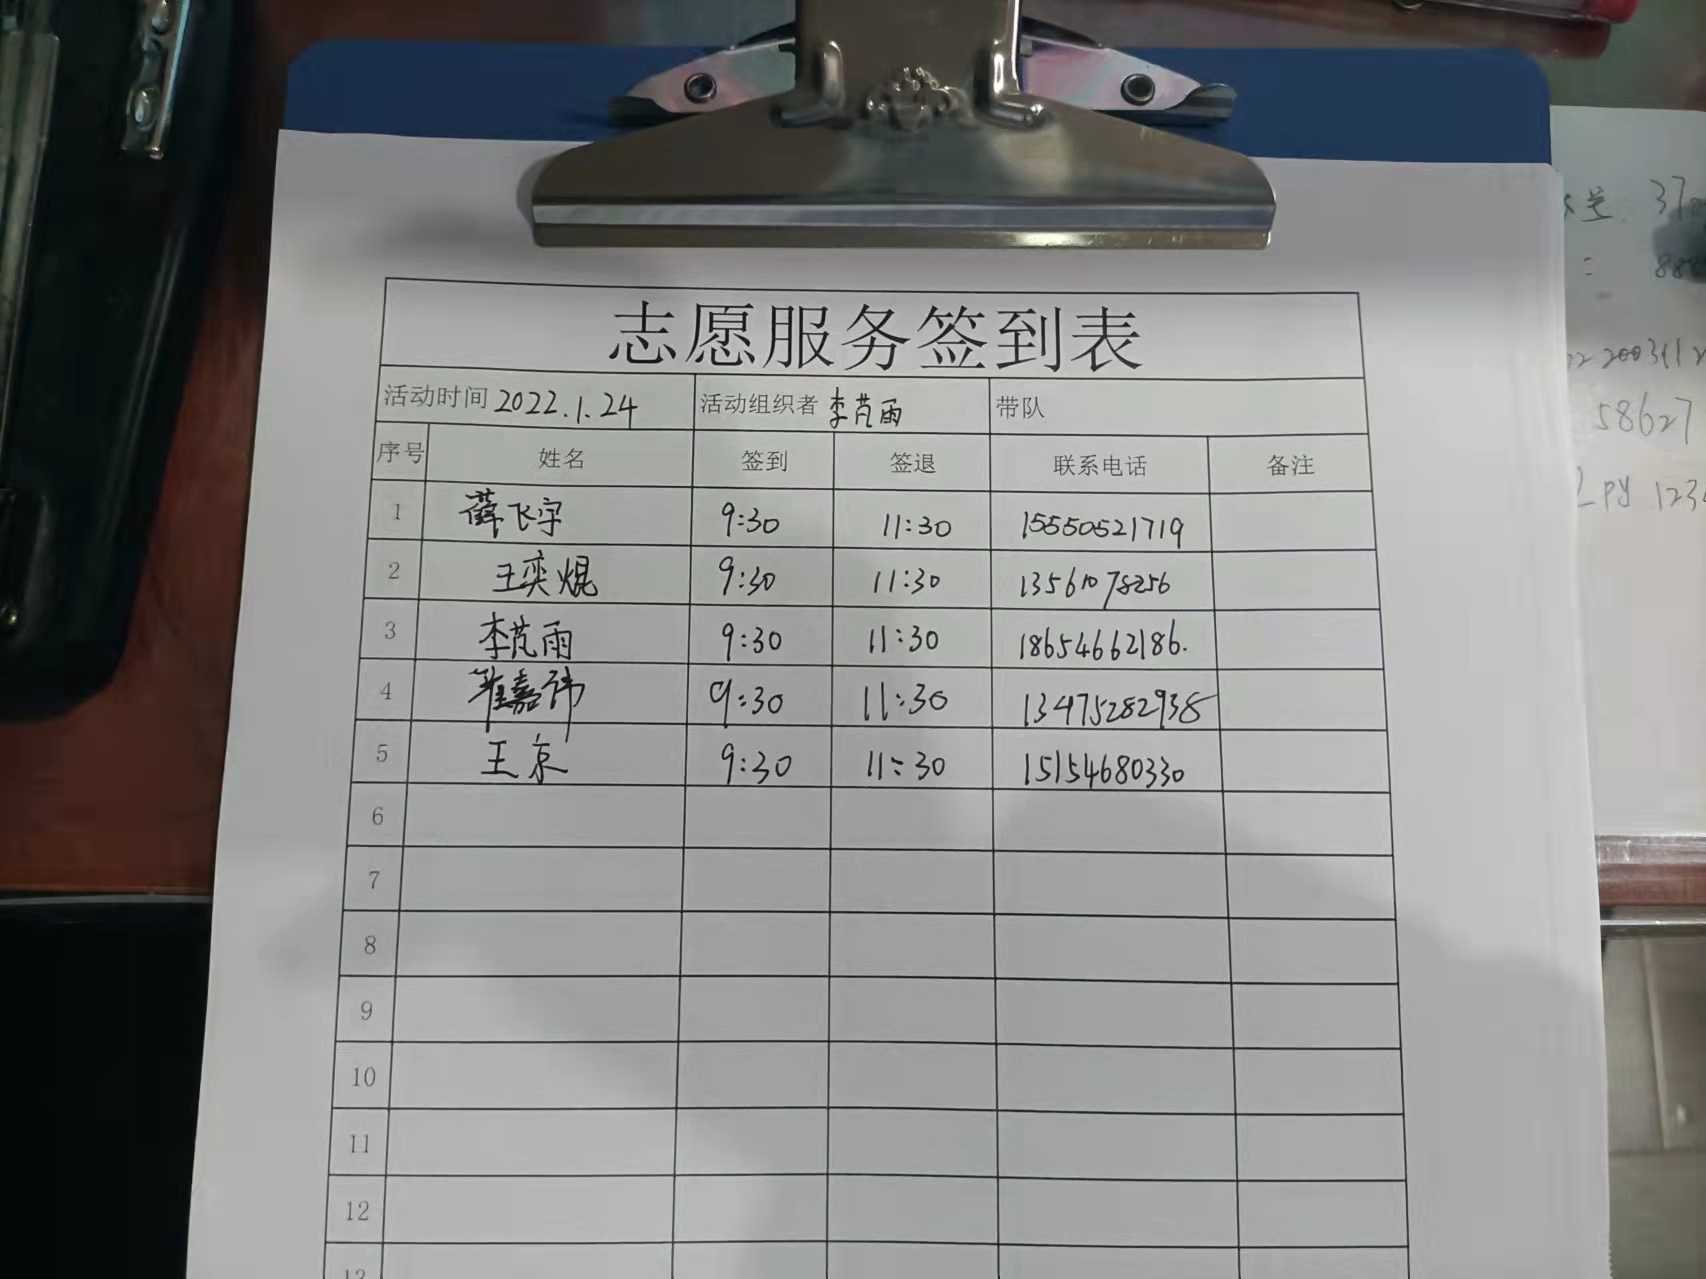 志愿服务签到表
活动时间 2022.1.24 活动组织者 李芃雨 带队
序号 姓名 签到 签退 联系电话 备注
1 薛飞宇 9:30 11:30 15550521719
2 王奕焜 9:30 11:30 13561078256
3 李芃雨 9:30 11:30 18654662186.
4 崔嘉祎 9:30 11:30 13475282938
5 王京 9:30 11:30 15154680330
6
7
8
9
10
11
12
13
37
888
2003112
58627
123